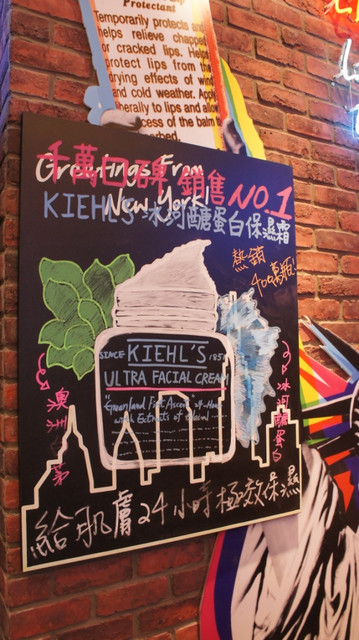 Protectant
Temporarily protects and
helps relieve chapped
or cracked lips. Helps
protect lips from the
drying effects of wind
and cold weather. Apply
liberally to lips and allow
excess of the balm to
Greetings From
New York!
千萬口碑 銷售NO.1
KIEHL'S冰河醣蛋白保濕霜
熱銷
400萬瓶!
SINCE KIEHL'S 1851
ULTRA FACIAL CREAM
冰河醣蛋白
給肌膚24小時極效保濕